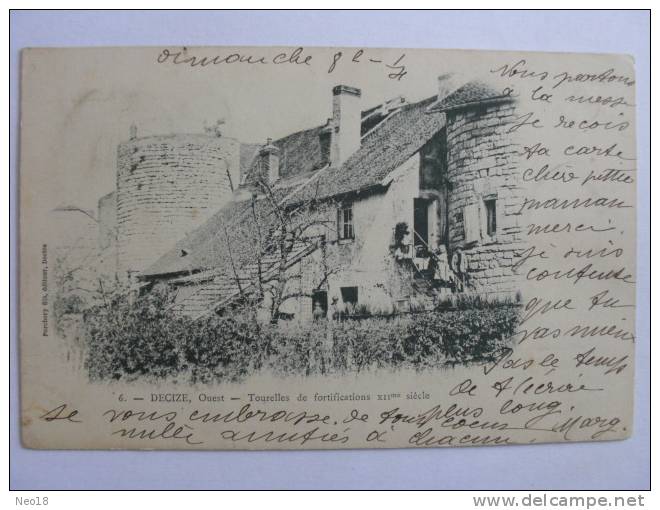 Dimanche 8h 1/4
Nous partons
à la messe
je reçois
ta carte
chère petite
maman
merci
je suis
contente
que tu
vas mieux
Pas le temps
de t'écrire
plus long.
Je vous embrasse de tout coeur Marg.
mille amitiés à chacun
Perchery fils, éditeur, Decize
6. — DECIZE, Ouest — Tourelles de fortifications XIIme siècle
Neo18
www.delcampe.net